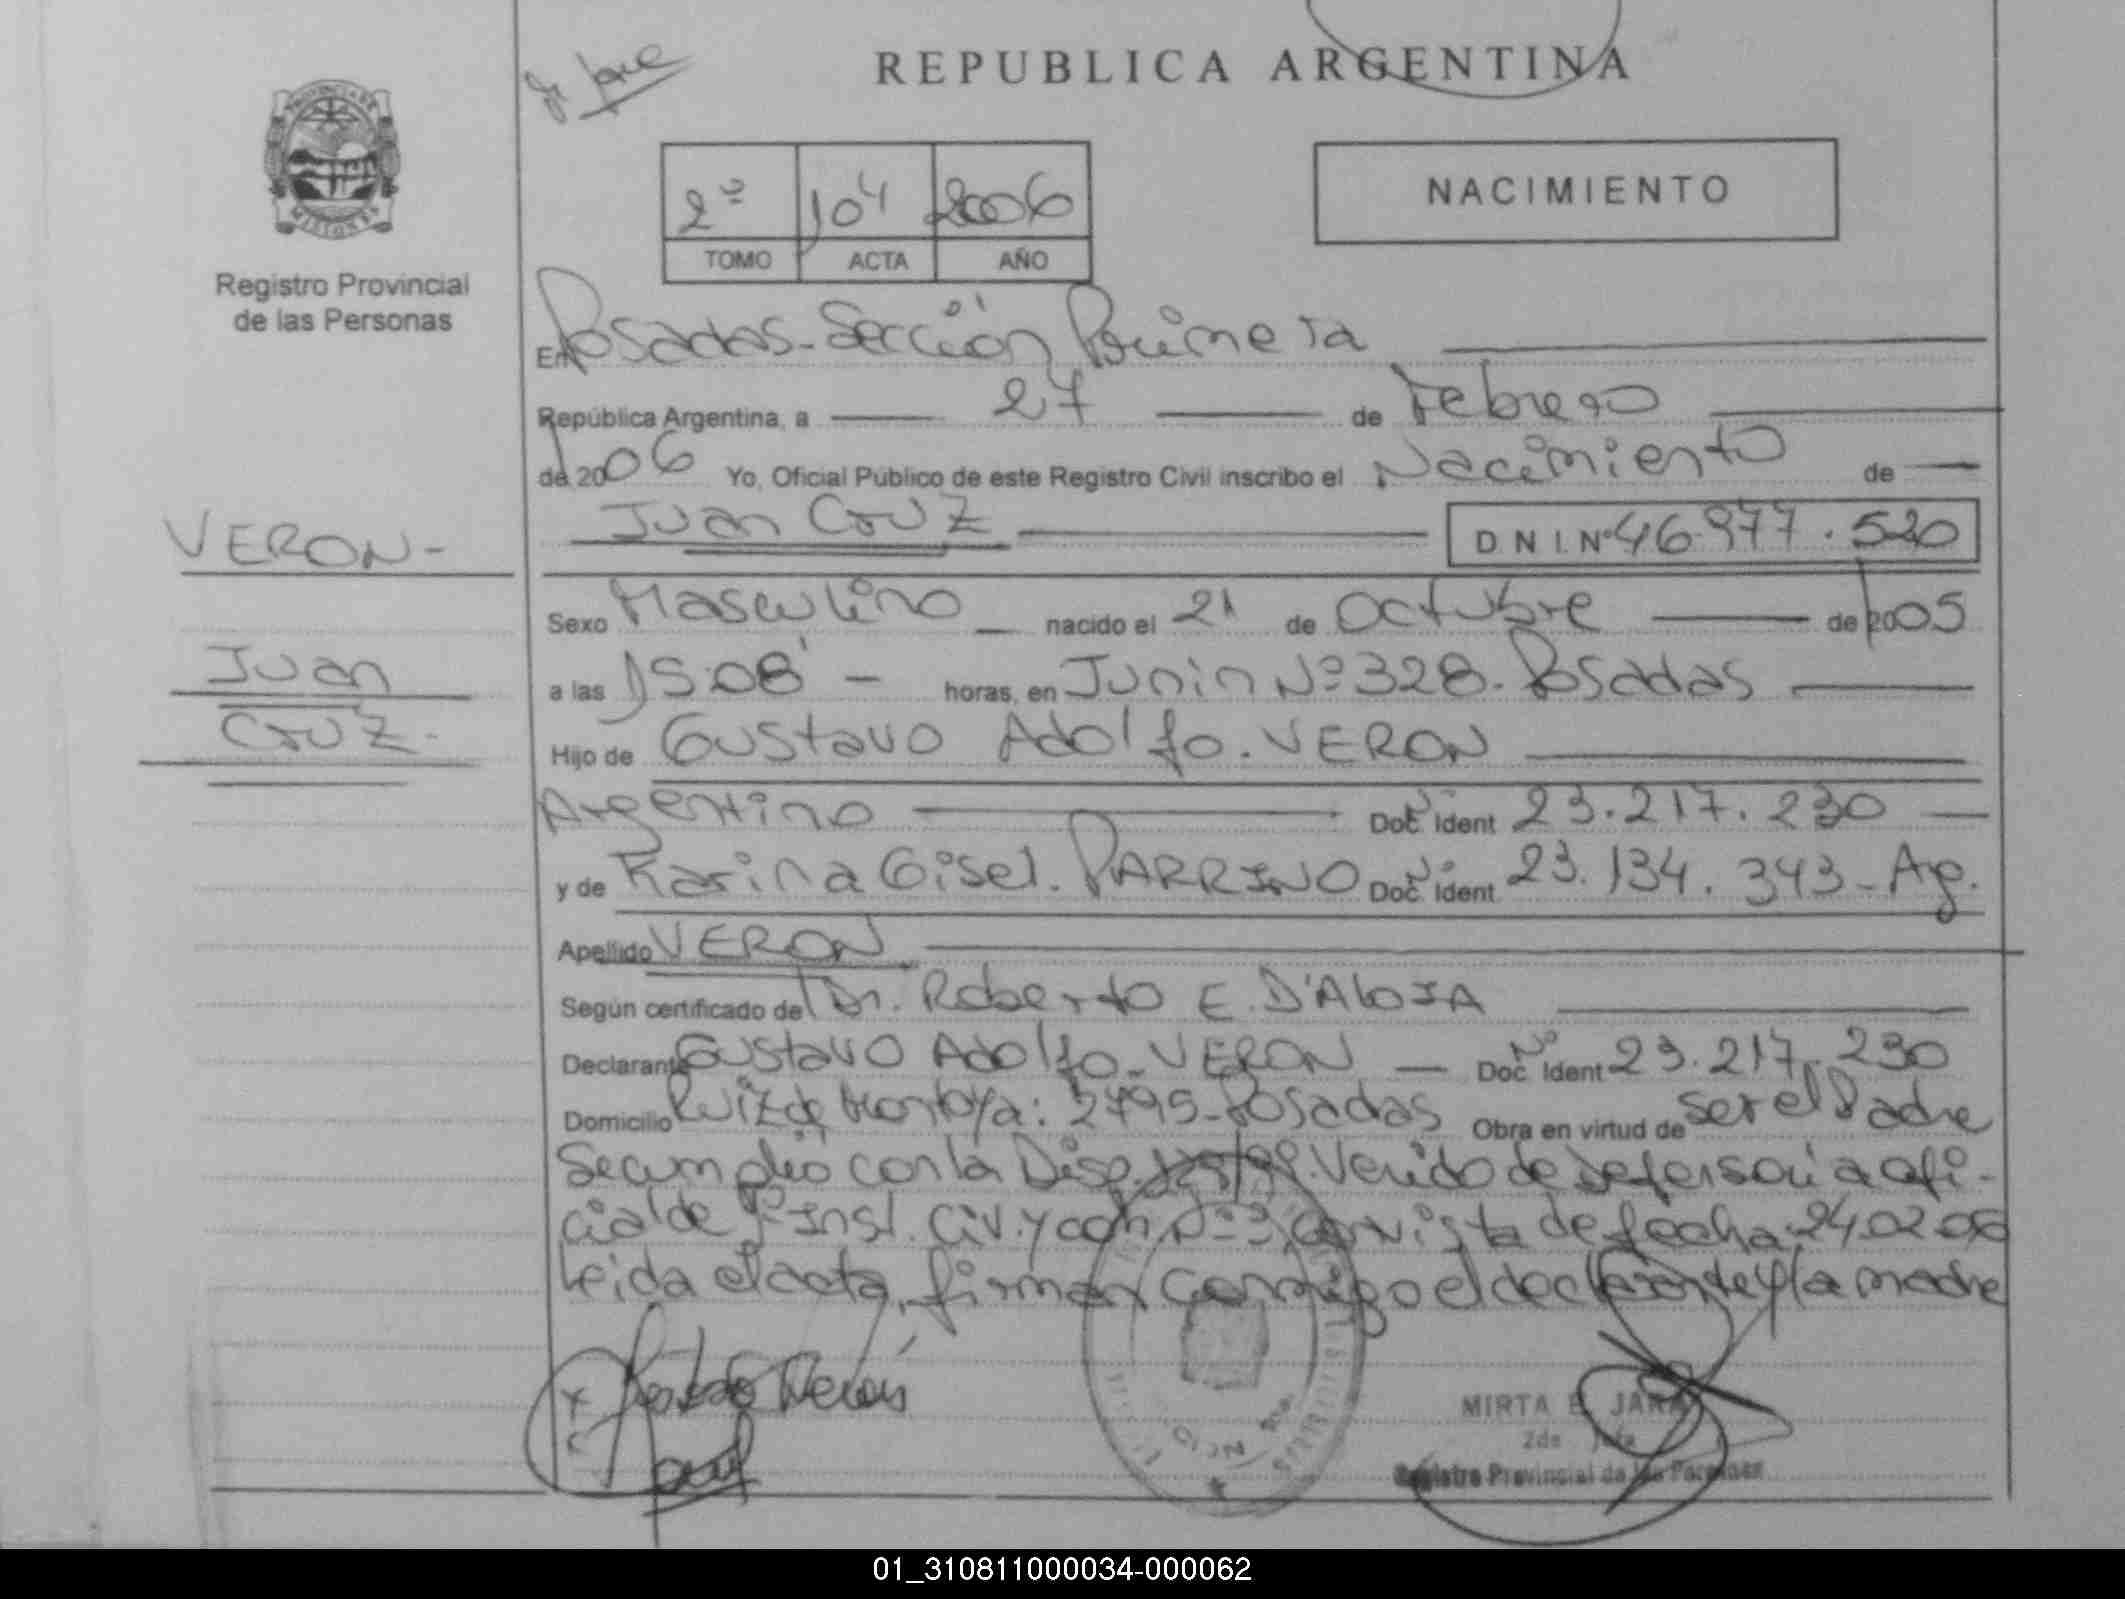 REPUBLICA ARGENTINA
PROVINCIA DE MISIONES
Registro Provincial
de las Personas
2º 104 2006
TOMO ACTA AÑO
NACIMIENTO
En Posadas - Sección Primera
República Argentina, a 27 de Febrero
de 2006 Yo, Oficial Público de este Registro Civil inscribo el Nacimiento de
Juan Cruz D N I. Nº 46.977.520
VERON -
Juan
Cruz.
Sexo Masculino nacido el 21 de Octubre de 2005
a las 15:08' - horas, en Junin Nº 328. Posadas
Hijo de Gustavo Adolfo. VERON
Argentino Doc. Ident Nº 23.217.230
y de Karina Gisel. PARRINO Doc. Ident Nº 23.134.343 - Arg.
Apellido VERON
Según certificado del Dr. Roberto E. D'AloIA
Declarante Gustavo Adolfo. VERON Doc. Ident Nº 23.217.230
Domicilio Ruiz de Montoya: 2795 - Posadas Obra en virtud de ser el Padre
Se cumplió con la Disp. Venido de Defensoría ofi-
cial de 1º Inst. Civ. y com. Nº 3 con vista de fecha 24.02.06
Leida el acta, firman conmigo el declarante y la madre
MIRTA E. JARA
2da Jefa
Registro Provincial de las Personas
01_310811000034-000062